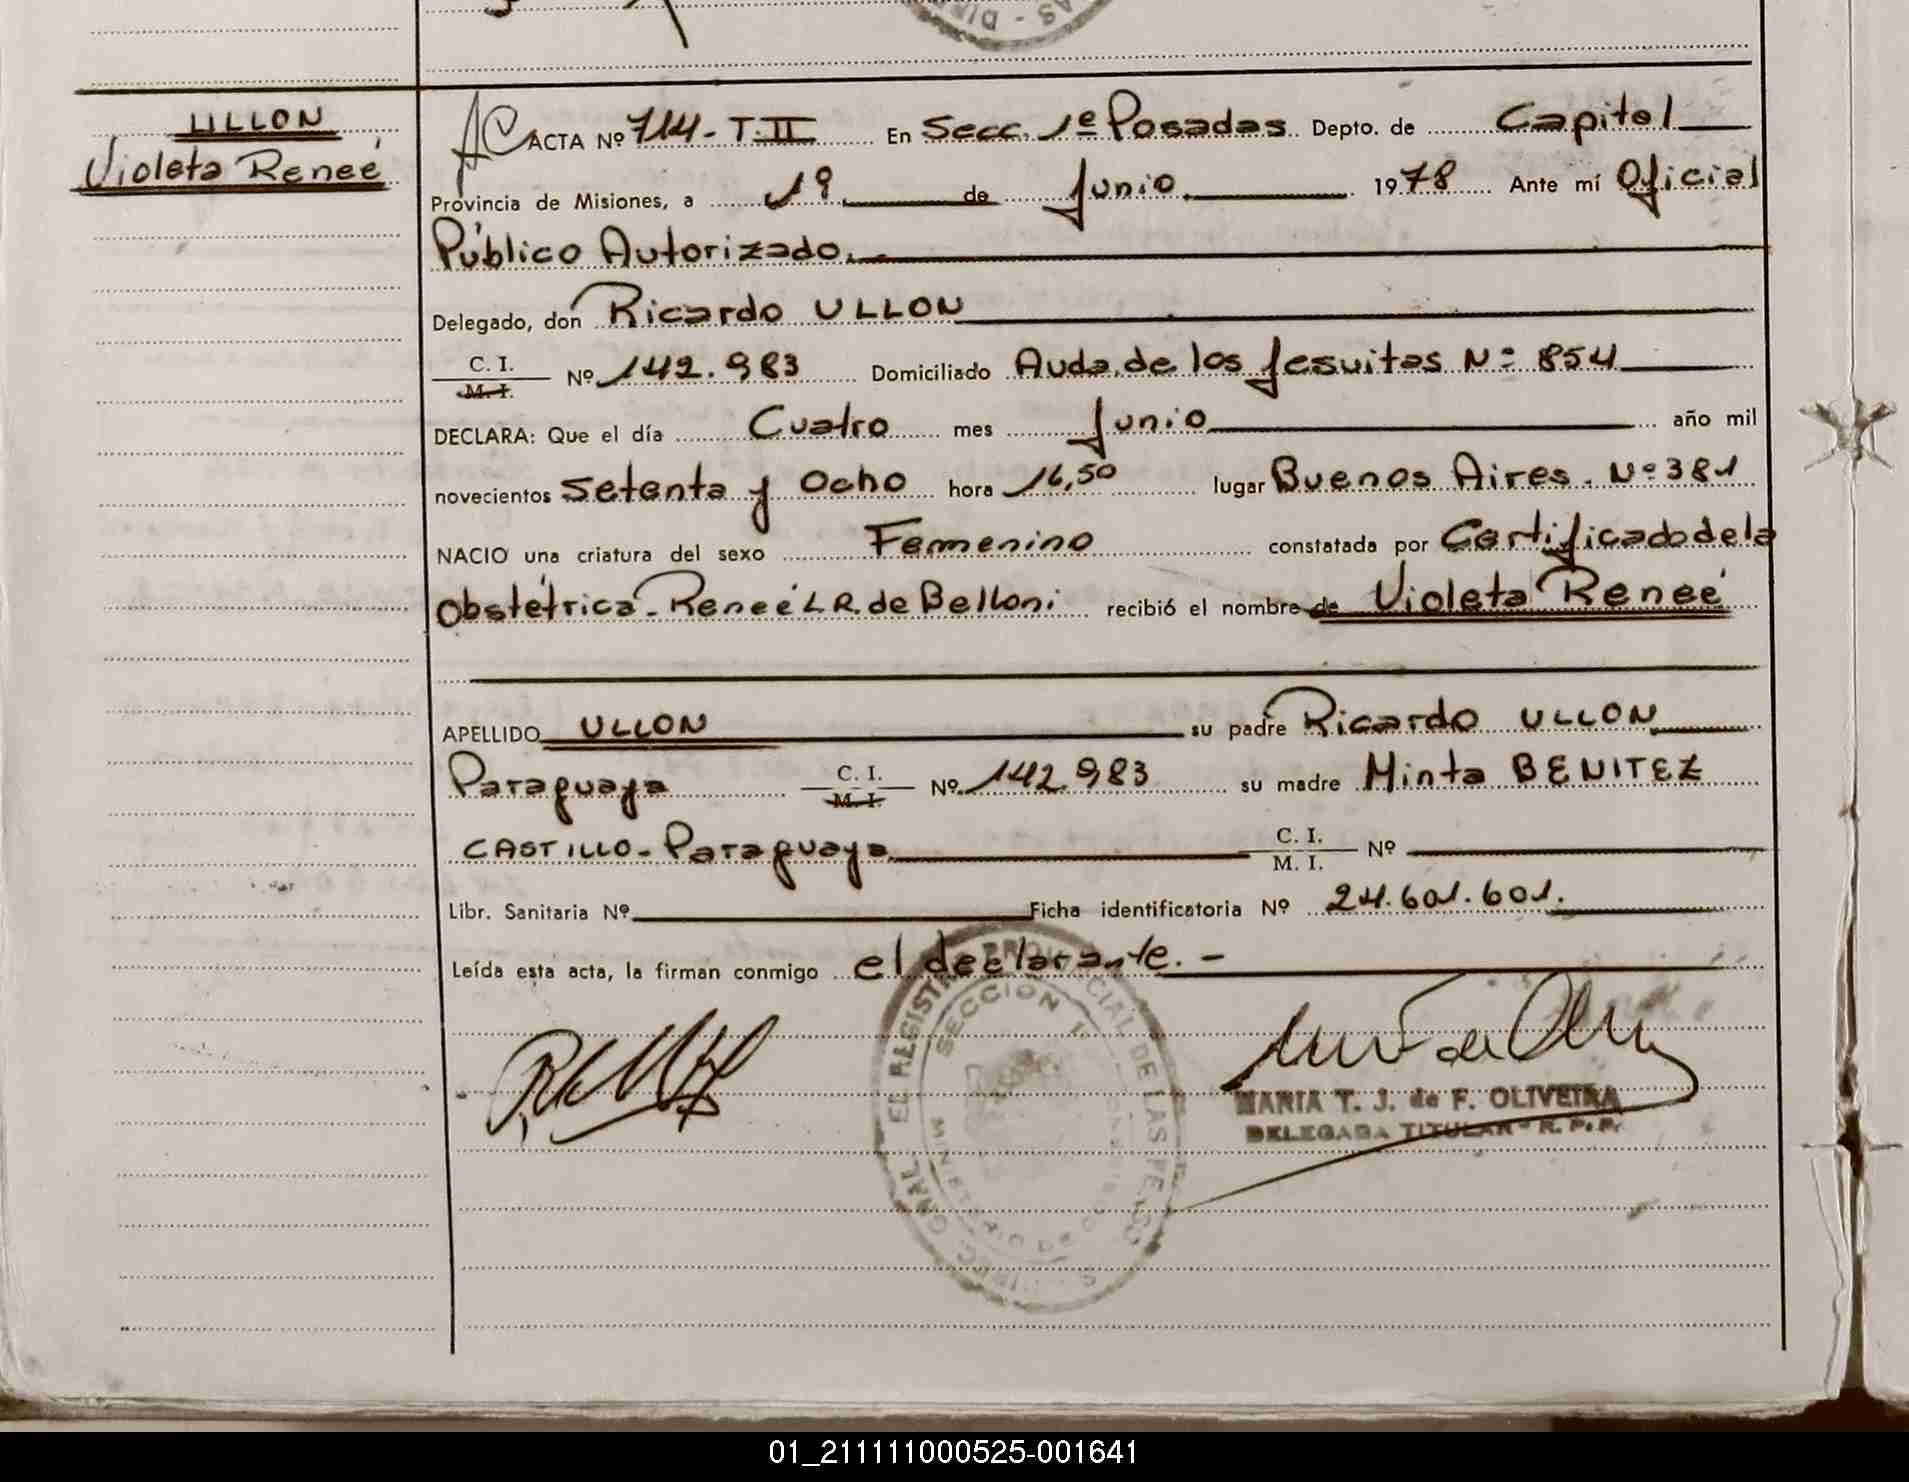 ULLON
Violeta Reneé
ACTA Nº 714-T.II En Secc. 1ª Posadas Depto. de Capital
Provincia de Misiones, a 19 de Junio 1978 Ante mí Oficial
Público Autorizado.-
Delegado, don Ricardo ULLON
C. I. M. I. Nº 142.983 Domiciliado Avda. de los Jesuitas Nº 854
DECLARA: Que el día Cuatro mes Junio año mil
novecientos setenta y ocho hora 16,50 lugar Buenos Aires. Nº 381
NACIO una criatura del sexo Femenino constatada por Certificado de la
Obstétrica - Reneé L.R. de Belloni recibió el nombre de Violeta Reneé
APELLIDO ULLON su padre Ricardo ULLON
Paraguaya C. I. M. I. Nº 142.983 su madre Minta BENITEZ
CASTILLO - Paraguaya C. I. M. I. Nº
Libr. Sanitaria Nº Ficha identificatoria Nº 24.601.601.
Leída esta acta, la firman conmigo el declarante. -
SECCION 1ª
MARIA T. J. de F. OLIVEIRA
DELEGADA TITULAR - R. P. P.
01_21111000525-001641